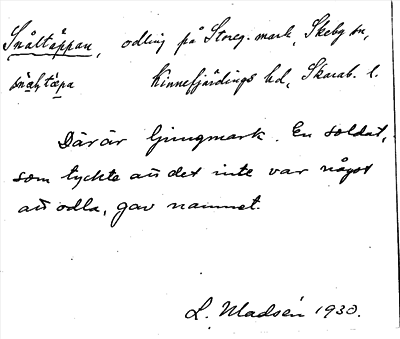 Snåltäppan, odling på Storeg. mark, Skeby sn,
Kinnefjärdings hd, Skarab. l.
Där är ljungmark. En soldat,
som tyckte att det inte var något
att odla, gav namnet.
L. Madsén 1930.